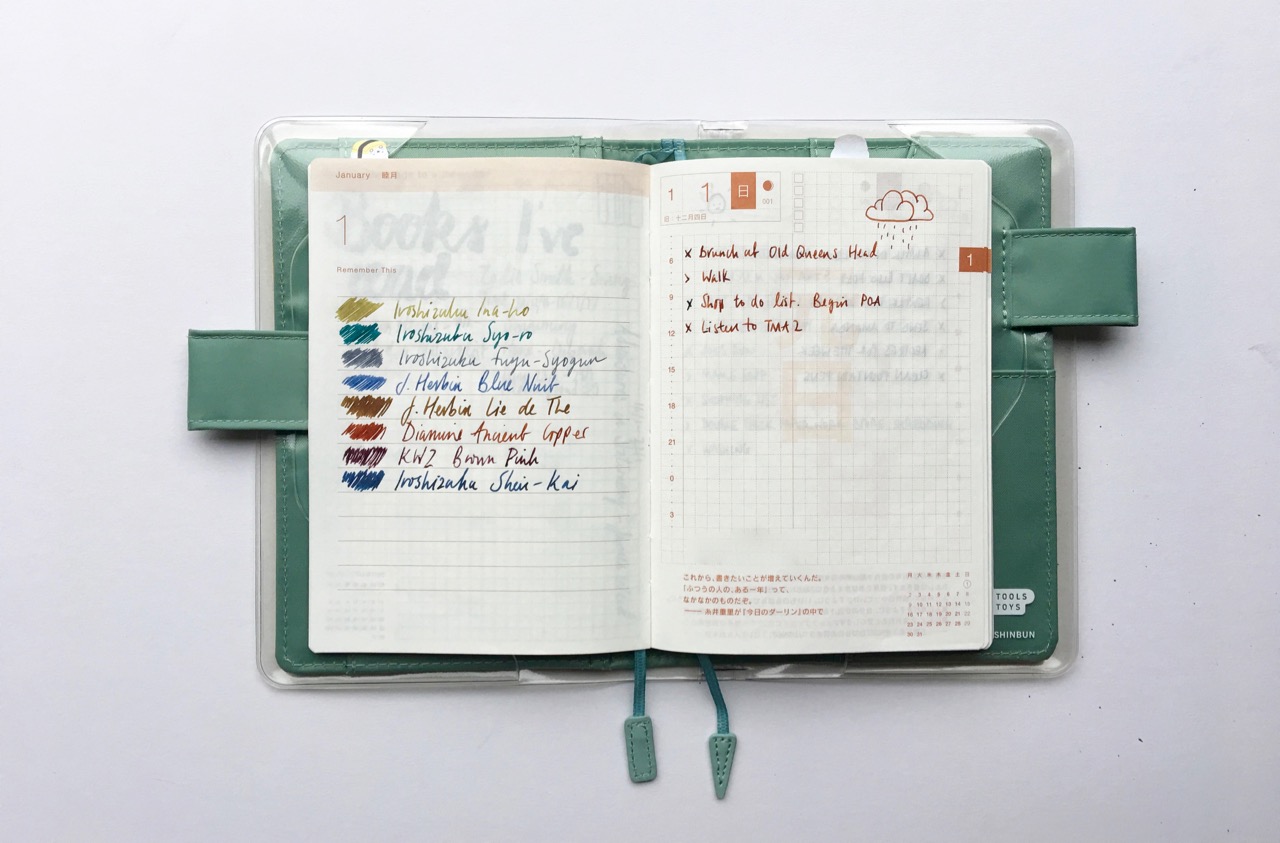 January 睦月
1
Remember This
Iroshizuku Ina-ho
Iroshizuku Syo-ro
Iroshizuku Fuyu-Syogun
J. Herbin Blue Nuit
J. Herbin Lie de The
Diamine Ancient Copper
KWZ Brown Pink
Iroshizuku Shin-Kai
1 1 日
001
旧 十二月四日
1
6 x Brunch at Old Queens Head
> Walk
9 x Shop to do list. Begin POA
12 x Listen to TMA2
15
18
21
0
3
これから、書きたいことが増えていくんだ。
「ふつうの人の、ある一年」って、
なかなかのものだぞ。
—— 糸井重里が『今日のダーリン』の中で
月 火 水 木 金 土 日
1
2 3 4 5 6 7 8
9 10 11 12 13 14 15
16 17 18 19 20 21 22
23 24 25 26 27 28 29
30 31
TOOLS
TOYS
SHINBUN